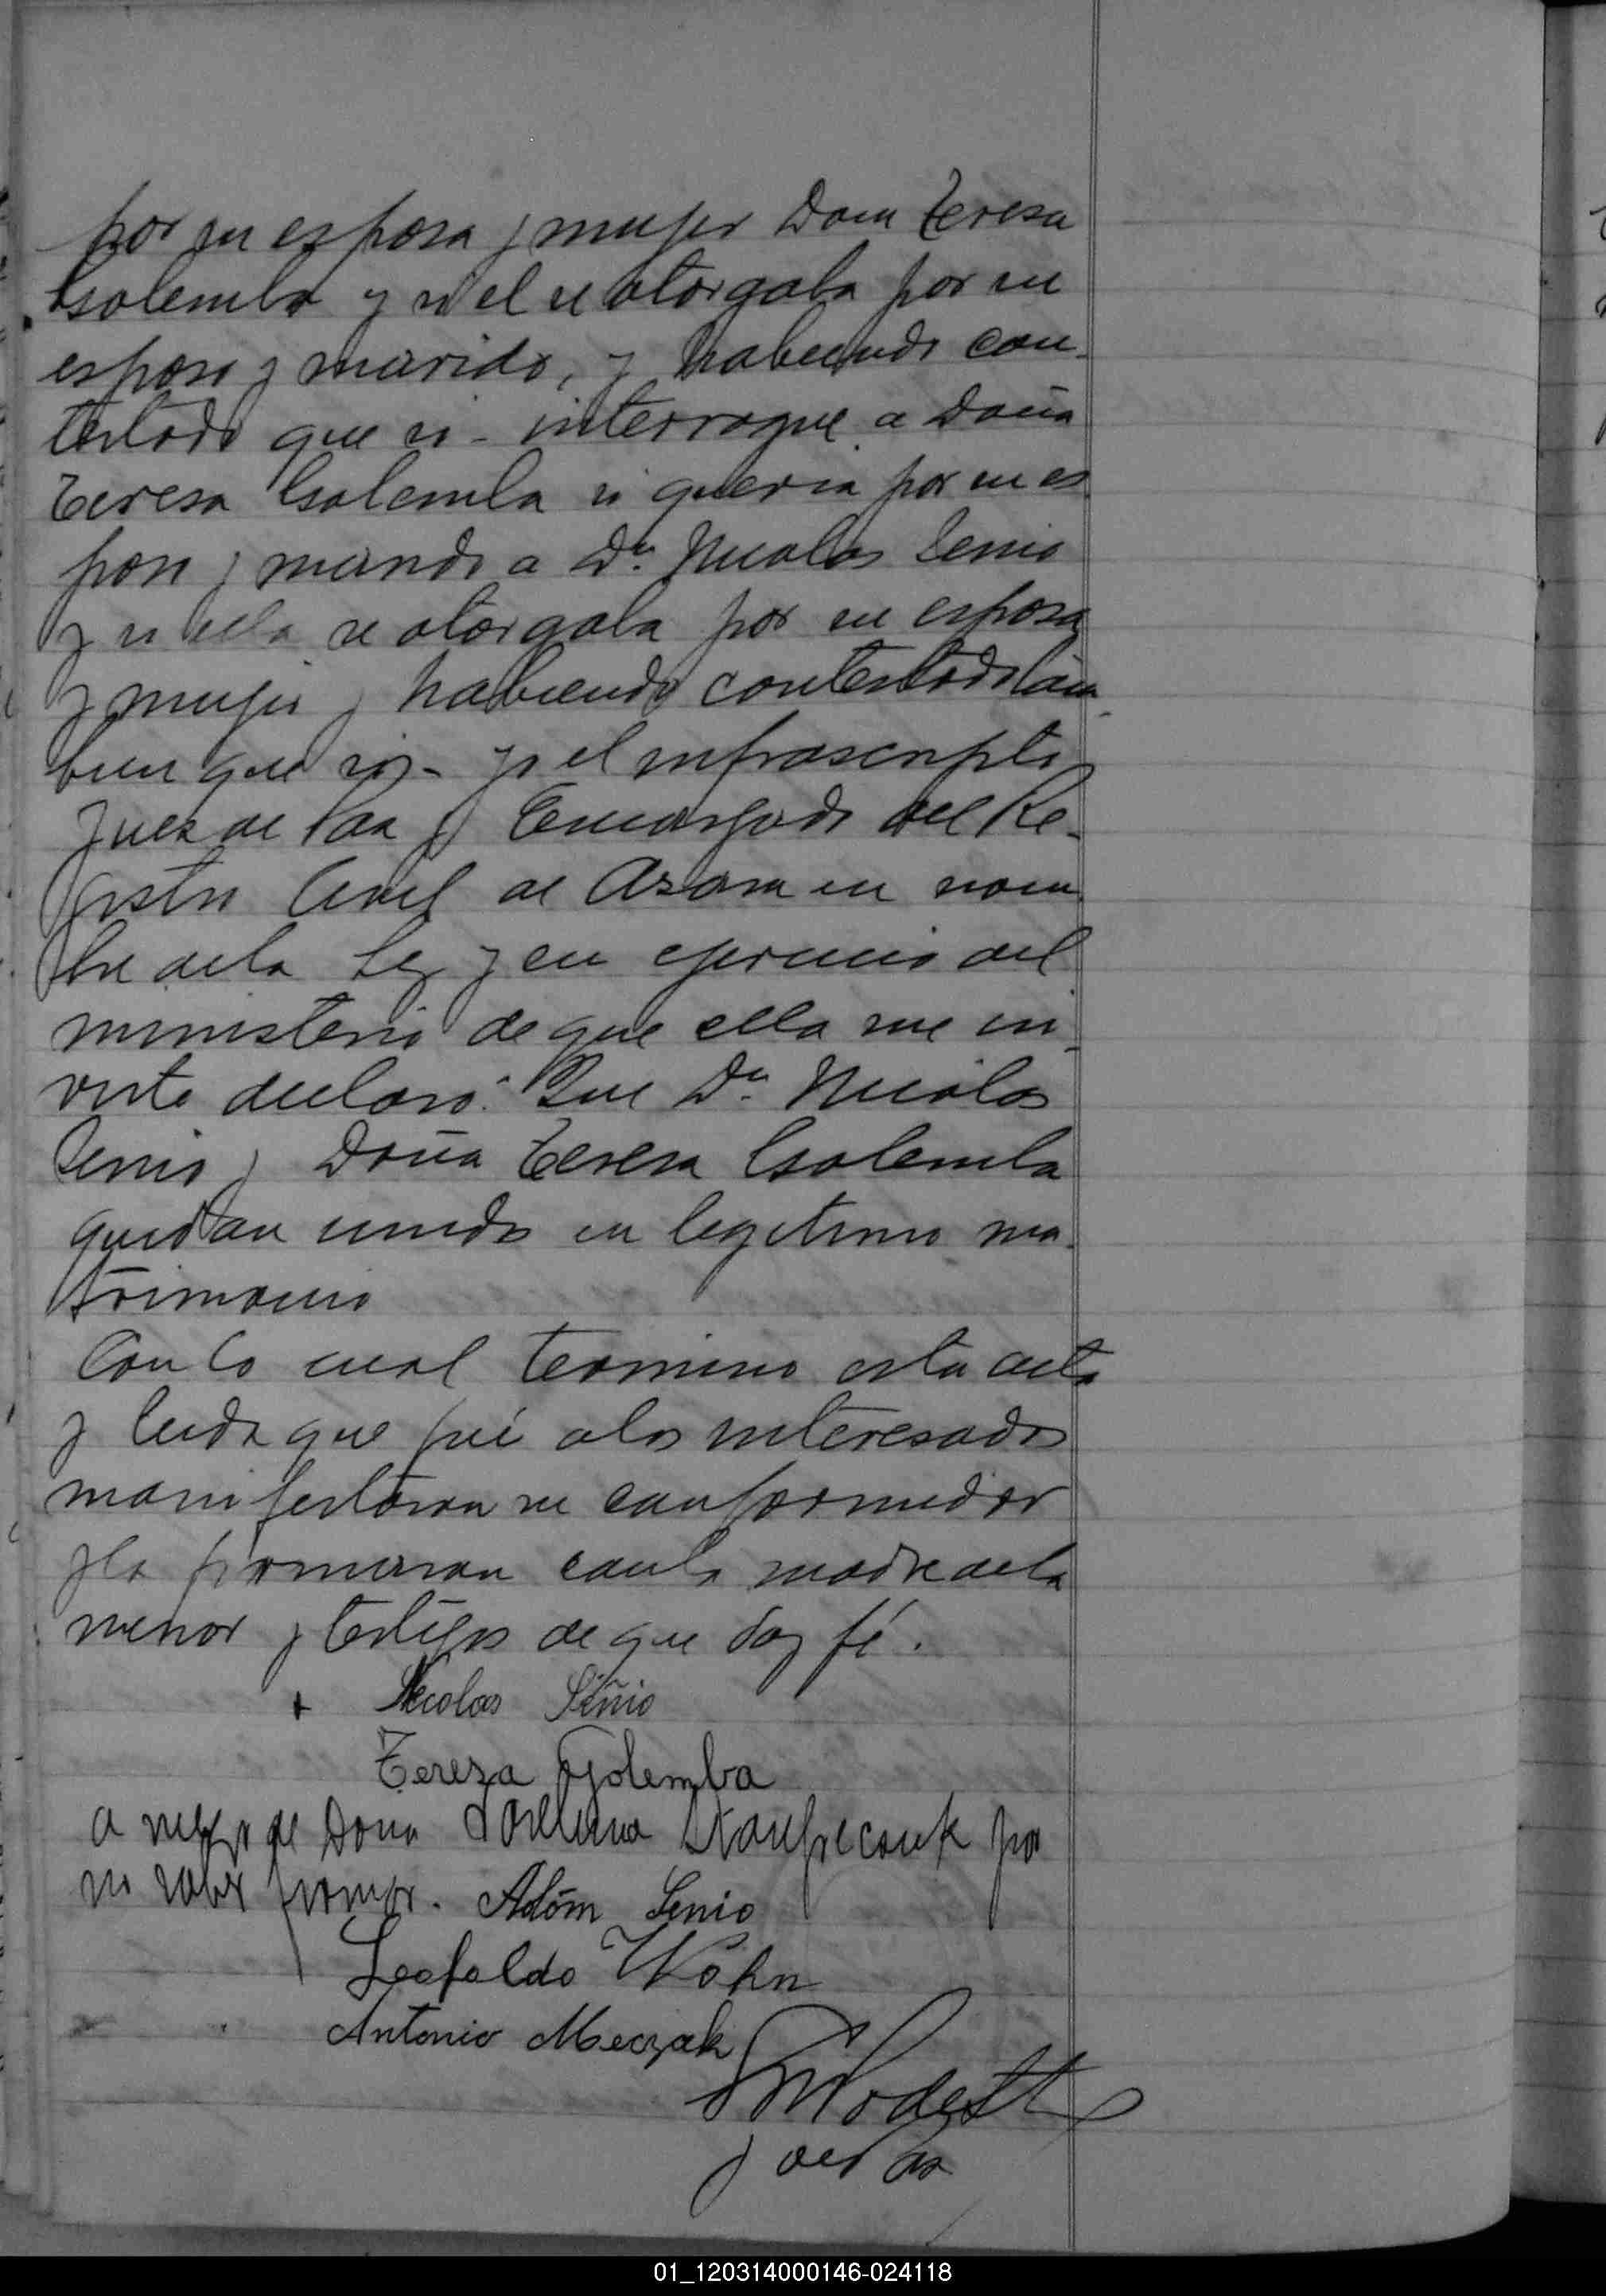 por su esposa y mujer Doña Teresa
Golemba y si el se otorgaba por su
esposo y marido, y habiendo con-
testado que si - interrogue a Doña
Teresa Golemba si queria por su es
poso y marido a Dn. Nicolas Senio
y si ella se otorgaba por su esposa
y mujer y habiendo contestado tam
bien que si, - yo el infrascripto
Juez de Paz y Encargado del Re-
gistro Civil de Azara en nom
bre de la Ley y en ejercicio del
ministerio de que ella me in
viste declaro: Que Dn. Nicolas
Senio y Doña Teresa Golemba
quedan unidos en legitimo ma-
trimonio
Con lo cual termino esta acta
y leida que fué a los interesados
manifestaron su conformidad
y la firmaron con la madre de la
menor y testigos de que doy fé.
+ Nicolas Siñio
Tereza Golemba
a ruego de Dona por
no saber firmar. Adóm Senio
Leopoldo Wohn
Antonio Meczak
Juez de Paz
01_120314000146-024118